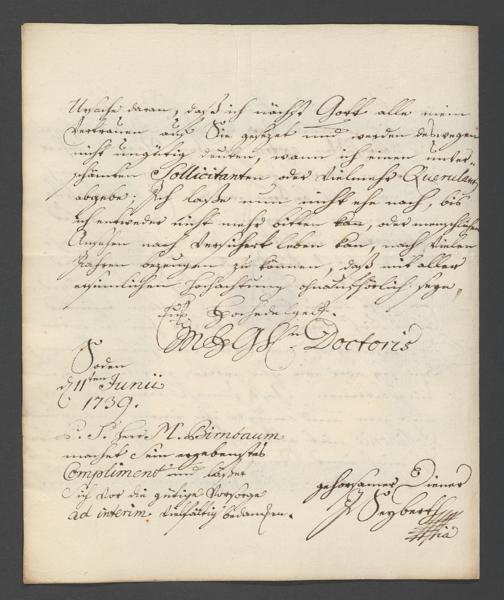 Ursache daran, daß ich nächst Gott alle mein
Vertrauen auf Sie gesezet und werden deswegen
nicht ungütig deuten, wann ich einen unver-
schämten Sollicitanten oder vielmehr Querulant
abgebe; Ich laße nun nicht ehe nach, bis
ich entweder nicht mehr bitten kan, oder menschlichem
Ansehen nach versichert leben kan, nach vielen
Jahren bezeugen zu können, daß mit aller
ersinnlichen Hochachtung ohnaufhörlich seye,
Eur. Hochedelgeb.
Doctoris
Soden
d 11ten Junii
1739.
P. S. Herr M. Birnbaum
machet sein ergebenstes
Compliment und läßet
sich vor die gütige Vorsorge
ad interim vielfältig bedancken.
gehorsamer Diener
Seyberth